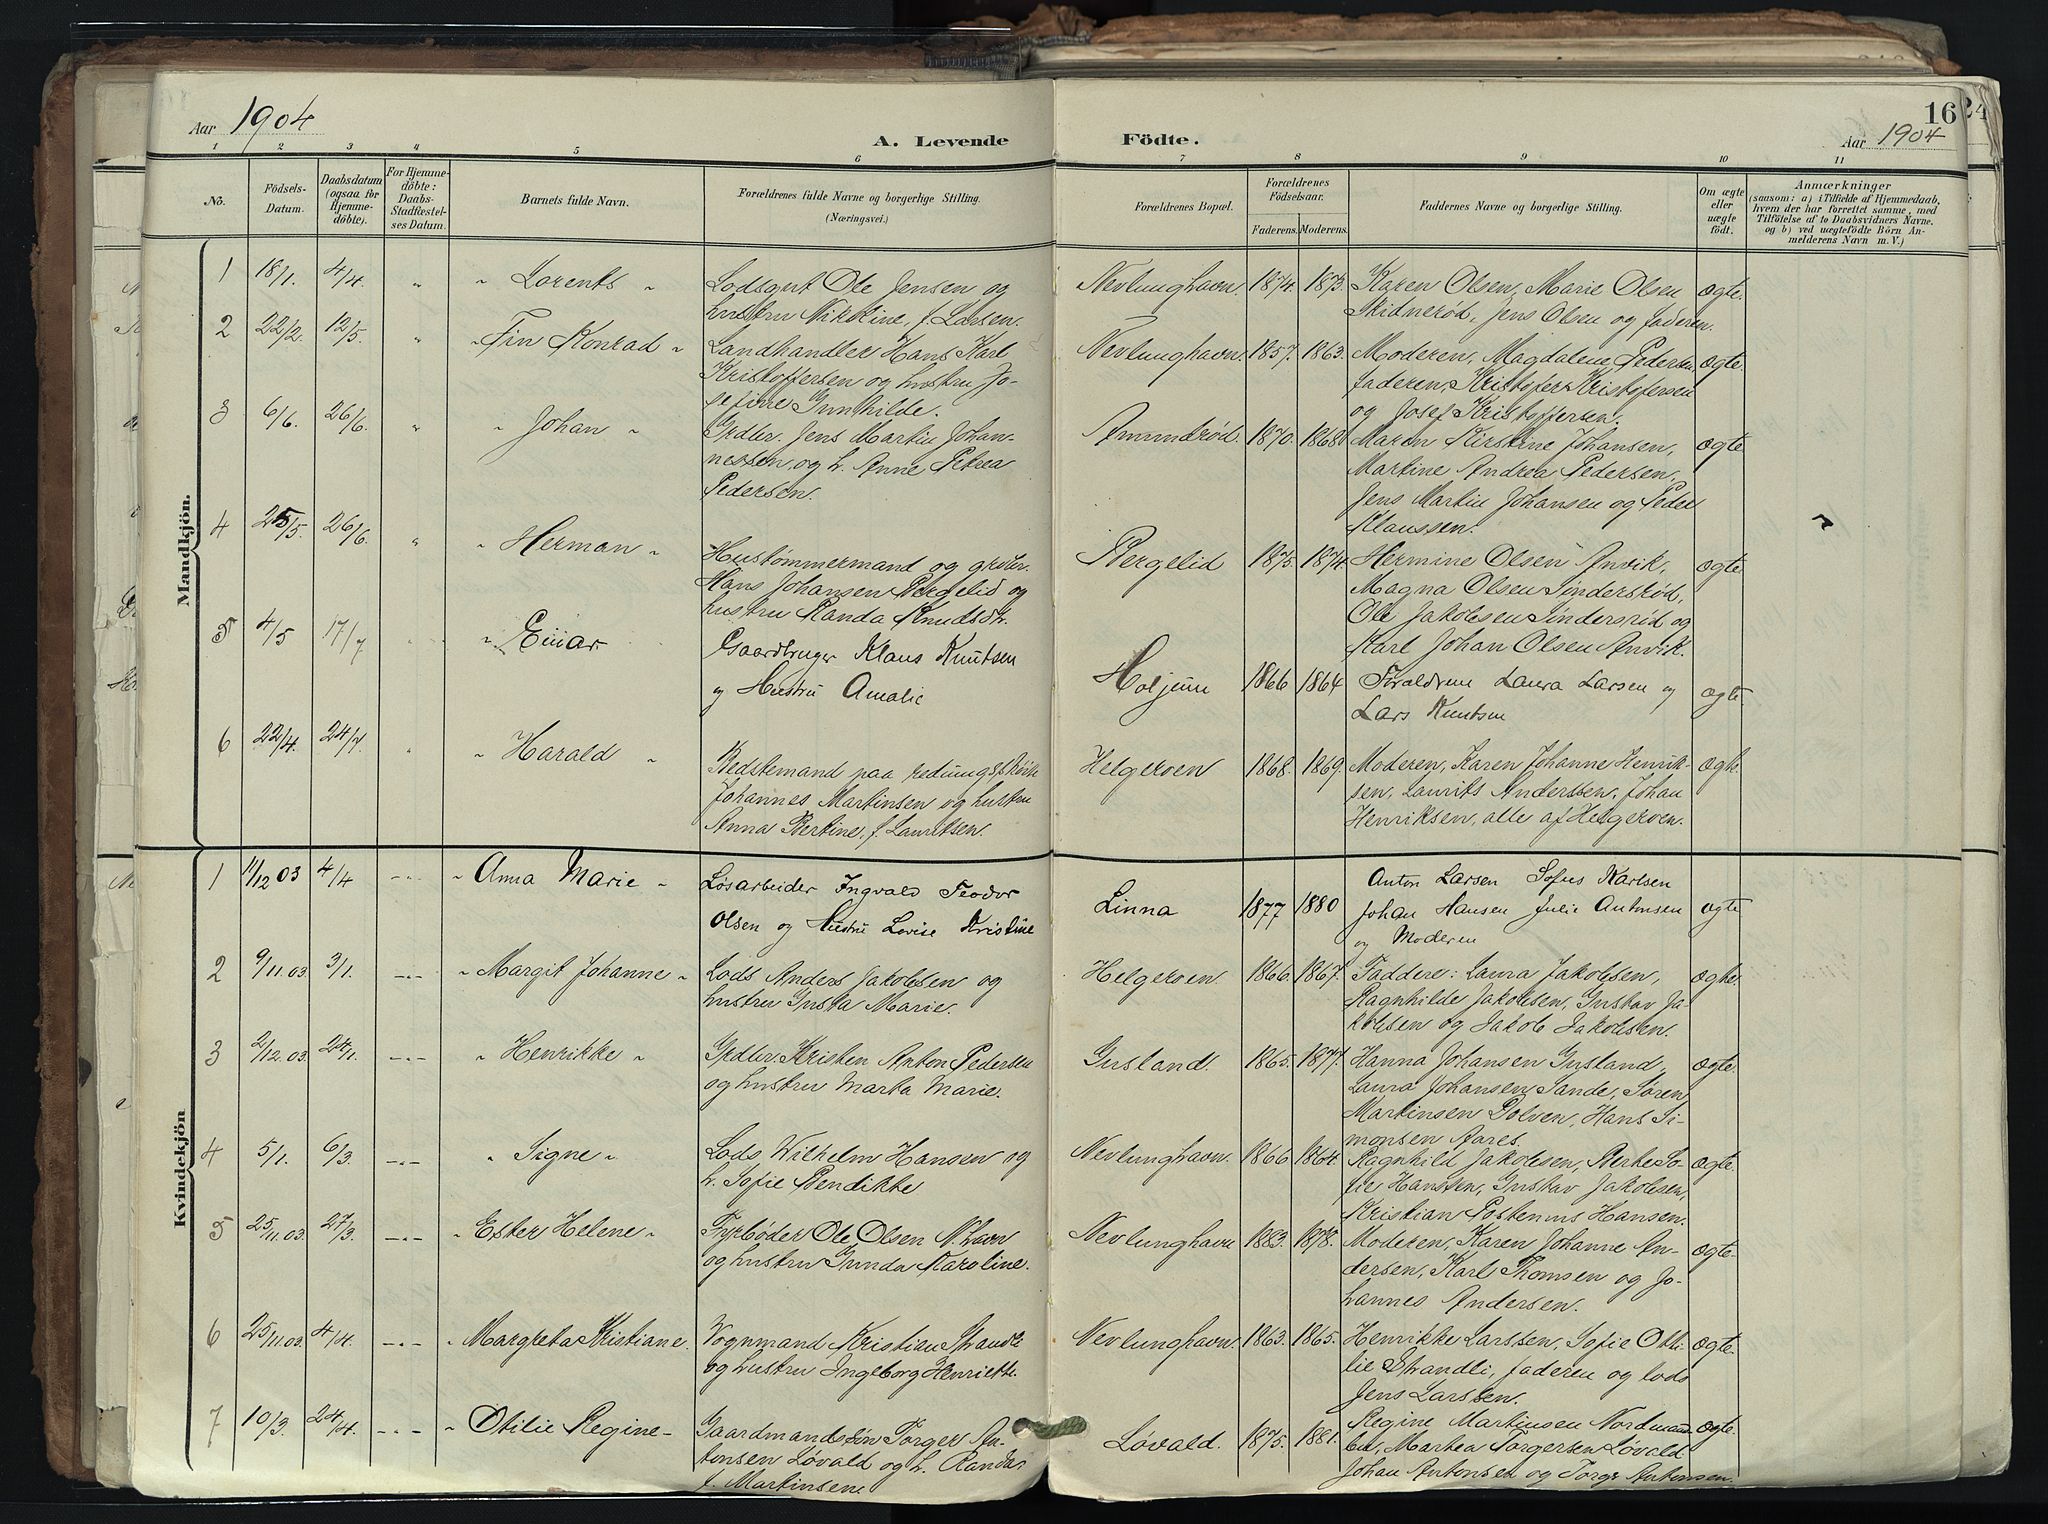 Aar 1904
A. Levende Födte.
16
24
Aar 1904
1 2 3 4 5 6 7 8 9 10 11
No.
Födsels-
Datum.
Daabsdatum
(ogsaa for
Hjemme-
döbte).
For Hjemme-
döbte:
Daabs-
Stadfæstel-
ses Datum.
Barnets fulde Navn.
Forældrenes fulde Navne og borgerlige Stilling.
(Næringsvei.)
Forældrenes Bopæl.
Forældrenes
Födselsaar.
Faderens. Moderens.
Faddernes Navne og borgerlige Stilling.
Om ægte
eller
uægte
födt.
Anmærkninger
(saasom: a) i Tilfælde af Hjemmedaab,
hvem der har forrettet samme, med
Tilföielse af to Daabsvidners Navne,
og b) ved uægtefödte Börn An-
melderens Navn m. V.)
Mandkjön.
1 18/1. 4/4. " " Lorents "
Lodsgut Ole Jensen og
hustru Nikoline, f. Larsen.
Nevlunghavn. 1874. 1873.
Karen Olsen, Marie Olsen
Skidnerød, Jens Olsen og faderen.
ægte.
2 22/2. 12/5. " " Fin Konrad "
Landhandler Hans Karl
Kristoffersen og hustru Jo-
sefine Gunhilde.
Nevlunghavn. 1857. 1863.
Moderen, Magdalene Pedersen
faderen, Kristofer Kristofersen
og Josef Kristoffersen.
ægte.
3 6/6. 26/6. " " Johan "
Grdbr. Jens Martin Johan-
nessen og h. Anne Petrea
Pedersen.
Amundrød. 1870. 1868.
Maren Kirstine Johansen,
Martine Andrea Pedersen,
Jens Martin Johansen og Peder
Klaussen.
ægte
4 25/5. 26/6. " " Herman "
Hustømmermand og grdbr.
Hans Johansen Bergelid og
hustru Randa Knudsdtr.
Bergelid 1875. 1874.
Hermine Olsen Anvik,
Magna Olsen Sindersrød,
Ole Jakobsen Sindersrød og
Karl Johan Olsen Anvik.
ægte.
5 4/5 17/7 " " Einar
Gaardbruger Klaus Knutsen
og Hustru Amalie
Holjem 1866 1864
Forældrene Laura Larsen og
Lars Knutsen
ægte
6 22/4. 24/7. " " Harald "
Bedstemand paa redningsskøite
Johannes Martinsen og hustru
Anna Bertine, f. Lauritsen.
Helgeroen 1868. 1869.
Moderen, Karen Johanne Henrik-
sen, Laurits Anderssen, Johan
Henriksen, alle af Helgeroen.
ægte.
Kvindekjön
1 11/12 03 4/4 -"- " Anna Marie "
Løsarbeider Ingvald Teodor
Olsen og Hustru Lovise Kristine
Linna 1877 1880
Anton Larsen Sofus Karlsen
Johan Hansen Julie Antonsen
og Moderen
ægte
2 9/11.03. 3/1. -"- " Margit Johanne "
Lods Anders Jakobsen og
hustru Gusta Marie.
Helgeroen. 1866. 1867.
Faddere: Laura Jakobsen,
Ragnhilde Jakobsen, Gustav Ja-
kobsen og Jakob Jakobsen.
ægte.
3 2/12.03. 24/1. -"- " Henrikke "
Grdbr. Kristen Anton Pedersen
og hustru Marta Marie.
Gusland. 1865. 1877.
Hanna Johansen Gusland,
Laura Johansen Sande, Søren
Martinsen Dolven, Hans Si-
monsen Aares.
ægte.
4 5/1. 6/3. -"- " Signe "
Lods Wilhelm Hansen og
h. Sofie Bendikte
Nevlunghavn. 1866. 1864.
Ragnhild Jakobsen, Berte So-
fie Hanssen, Gustav Jakobsen,
Kristian Hansen.
ægte.
5 25/11.03. 27/3. -"- " Ester Helene "
Fyrbøder Ole Olsen N.havn
og hustru Gunda Karoline.
Nevlunghavn 1883. 1878.
Moderen, Karen Johanne An-
dersen, Karl Thomsen og Jo-
hannes Andersen.
ægte.
6 25/11.03. 4/4. -"- " Margreta Kristiane.
Vognmand Kristian Strandli
og hustru Ingeborg Henriette.
Nevlunghavn. 1863. 1865.
Henrikke Larssen, Sofie Otti-
lie Strandli, faderen og lods
Jens Larssen.
ægte.
7 10/3. 24/4. -"- " Otilie Regine -
Gaardmandssøn Torger An-
tonsen Løvald og h. Randa
f. Martinsen.
Løvald. 1875. 1881.
Regine Martinsen Nordmand-
Martea Torgersen Løvald
Johan Antonsen og Torger Antonsen.
ægte.